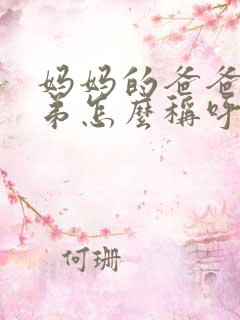 妈妈的爸爸
弟怎麼稱呼
何珊